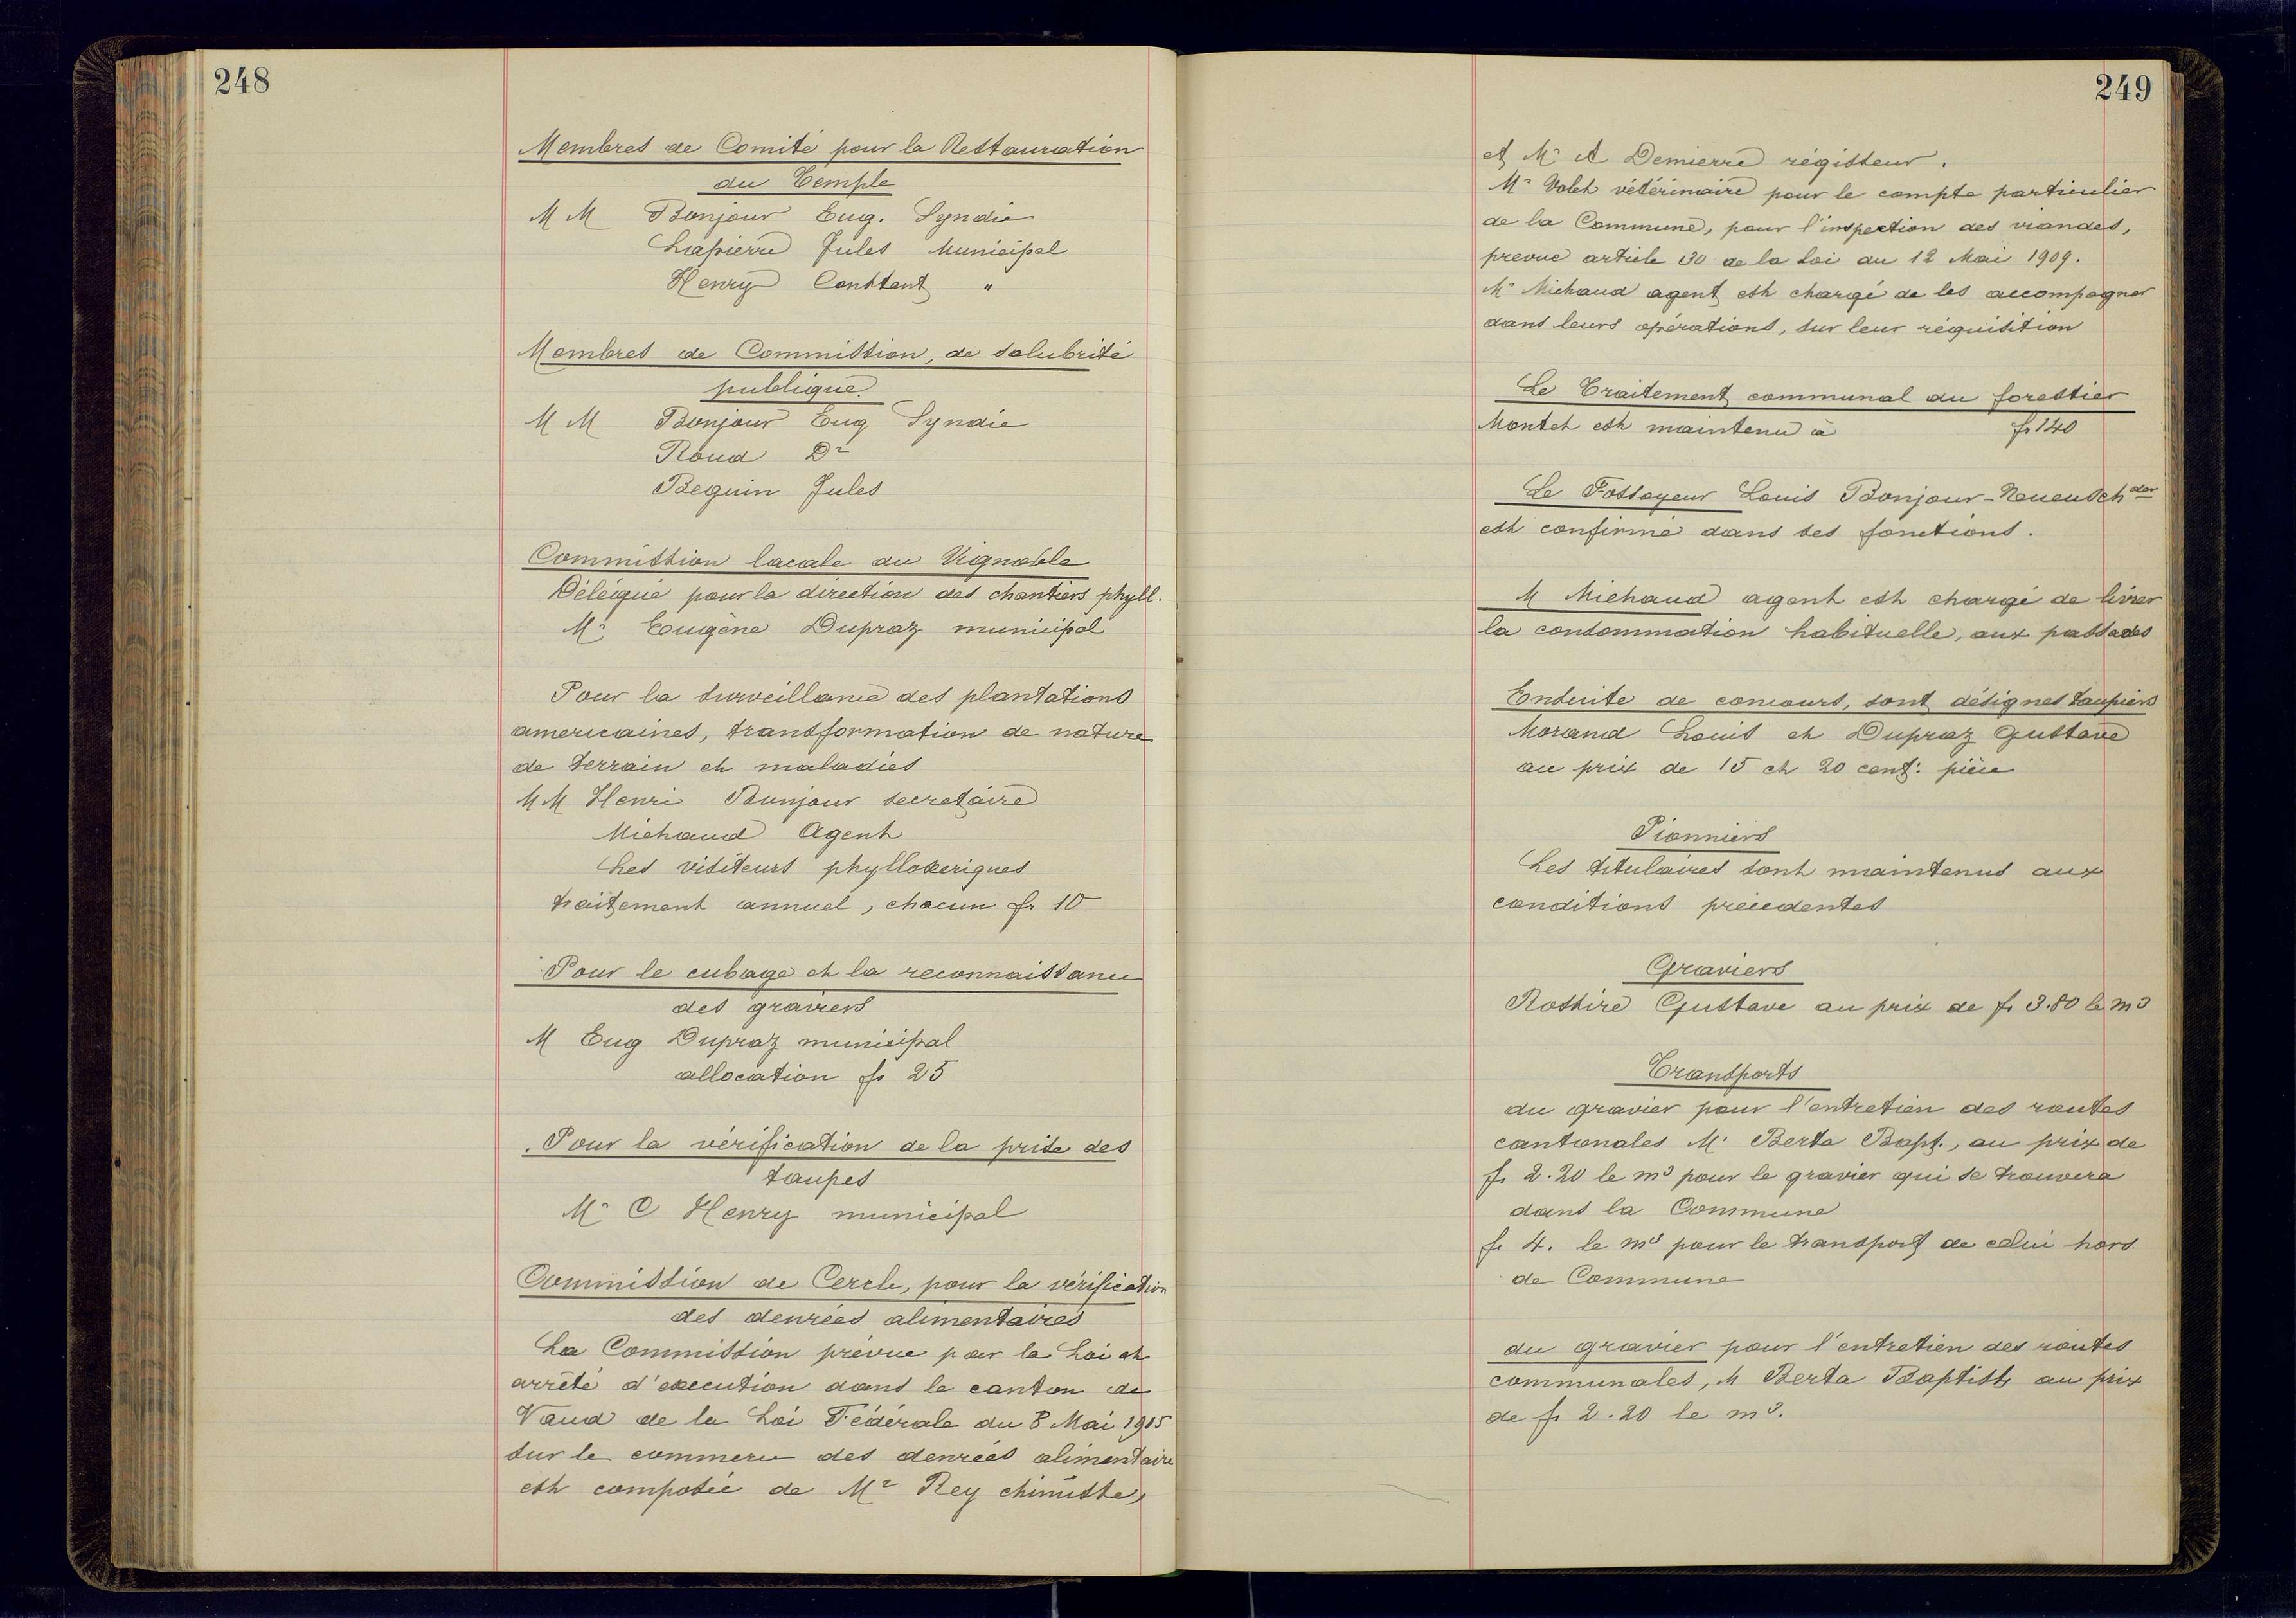 248
Membres de Comité pour la Restauration
du Temple
MM Bonjour Eug. Syndic
Lapierre Jules Municipal
Henry Constant "
Membres de Commission, de salubrité
publique.
MM Bonjour Eug Syndic
Roud Dr
Beguin Jules
Commission locale du Vignoble
Délégué pour la direction des chantiers phyll.
Mr Eugène Dupraz municipal
Pour la surveillance des plantations
americaines, transformation de nature
de terrain et maladies
MM Henri Bonjour secretaire
Michaud Agent
Les visiteurs phylloxeriques
traitement annuel, chacun fr 10
Pour le cubage et la reconnaissance
des graviers
M Eug Dupraz municipal
allocation fr 25
Pour la vérification de la prise des
taupes
Mr C Henry municipal
Commission de Cercle, pour la vérification
des denrées alimentaires
La Commission prévue par la Loi et
arrêté d'execution dans le canton de
Vaud de la Loi Fédérale du 8 Mai 1905
sur le commerce des denrées alimentaire
est composée de Mr Rey chimiste,
249
et Mr A Demierre régisseur.
Mr Volet vétérinaire pour le compte particulier
de la Commune, pour l'inspection des viandes,
prevue article 30 de la Loi du 12 Mai 1909.
Mr Michaud agent est chargé de les accompagner
dans leurs opérations, sur leur réquisition
Le Traitement communal du forestier
Montet est maintenu à fr 140
Le Fossoyeur Louis Bonjour-
est confirmé dans ses fonctions.
M Michaud agent est chargé de livrer
la consommation habituelle, aux passades
Ensuite de concours, sont désignés taupiers
Morand Louis et Dupraz Gustave
au prix de 15 et 20 cent: pièce
Pionniers
Les titulaires sont maintenus aux
conditions précedentes
Graviers
Rossire Gustave au prix de fr 3.80 le m3
Transports
du gravier pour l'entretien des routes
cantonales Mr Berta Bapt., au prix de
fr 2.20 le m3 pour le gravier qui se trouvera
dans la Commune
fr 4. le m3 pour le transport de celui hors
de Commune
du gravier pour l'entretien des routes
communales, M Berta Baptiste au prix
de fr 2.20 le m3.